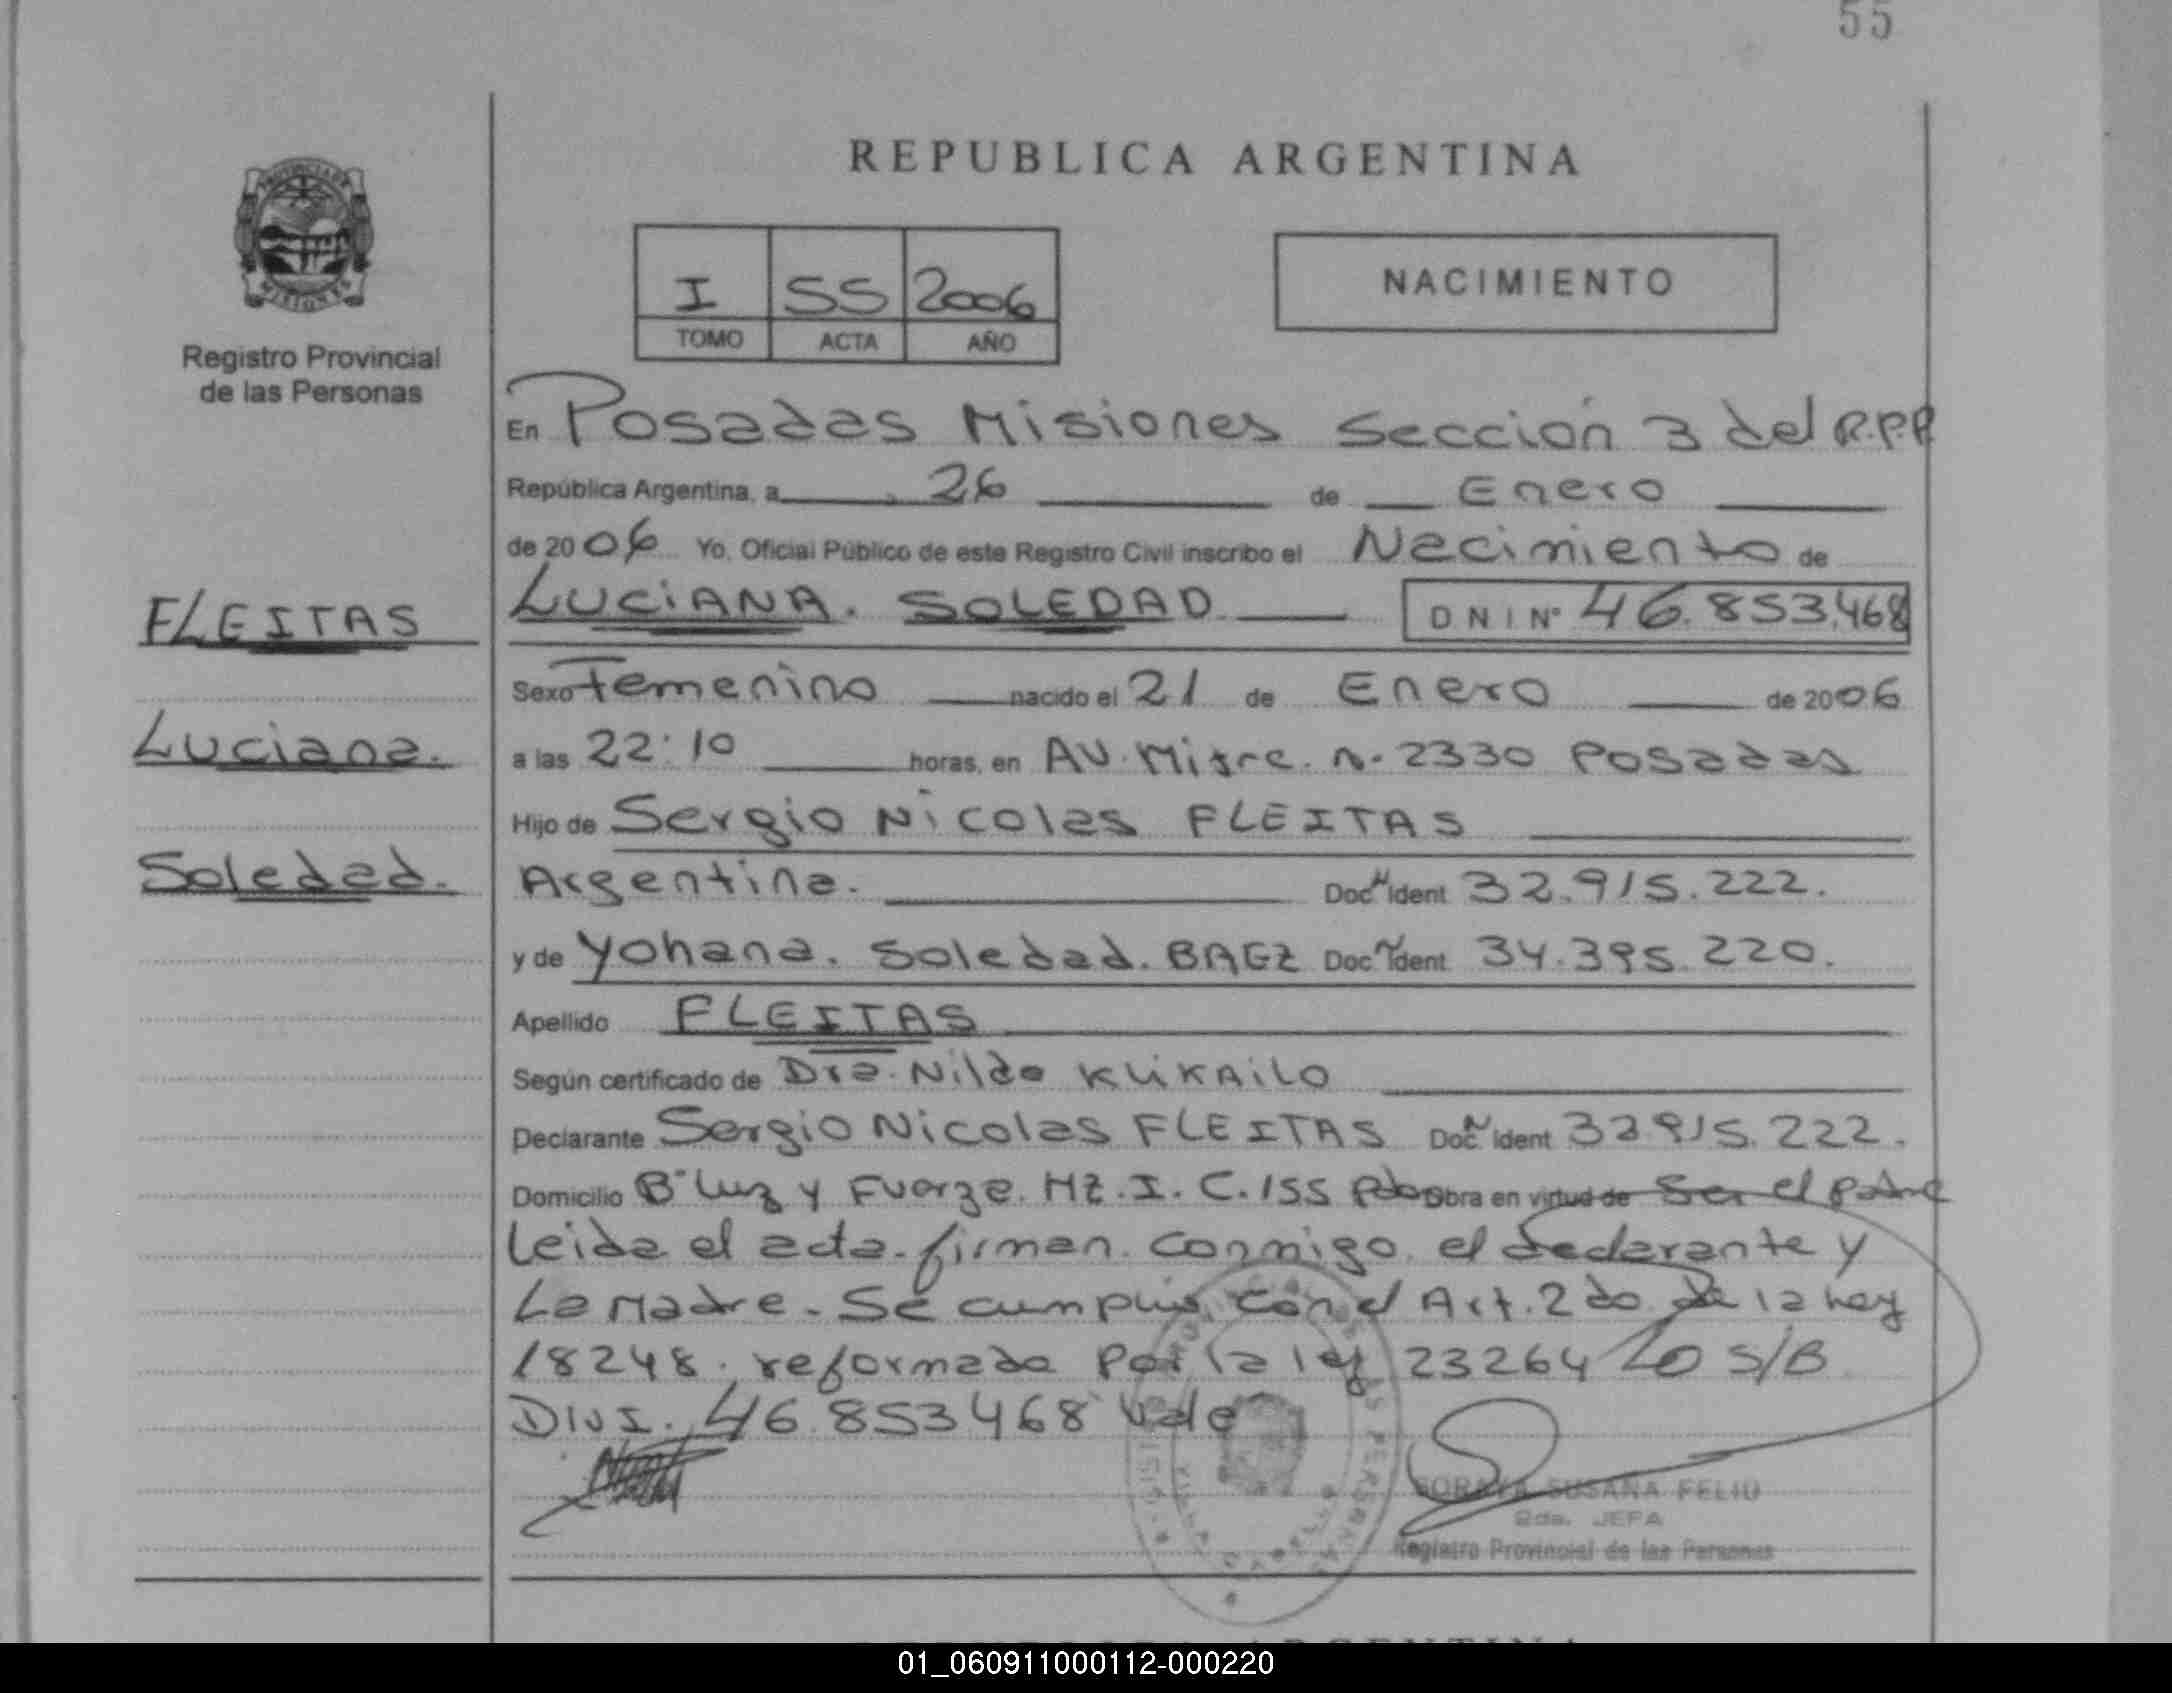 55
REPUBLICA ARGENTINA
PROVINCIA DE
MISIONES
Registro Provincial
de las Personas
I SS 2006
TOMO ACTA AÑO
NACIMIENTO
En Posadas Misiones Sección 3 del R.P.P
República Argentina, a 26 de Enero
de 2006 Yo, Oficial Público de este Registro Civil inscribo el Nacimiento de
FLEITAS
LUCIANA. SOLEDAD D N I Nº 46.853.468
Sexo Femenino nacido el 21 de Enero de 2006
Luciana.
a las 22:10 horas, en AV. Mitre. N. 2330 Posadas
Hijo de Sergio Nicolas FLEITAS
Soledad.
Argentina. Doc N Ident 32.915.222.
y de Yohana. Soledad. BAEZ Doc N Ident 34.395.220.
Apellido FLEITAS
Según certificado de Dra. Nilda KLIKAILO
Declarante Sergio Nicolas FLEITAS Doc N Ident 32.915.222.
Domicilio Bº Luz y Fuerza. MZ. I. C. 155 Pdas Obra en virtud de Ser el padre
Leida el acta. firman. conmigo. el declarante y
La Madre. Se cumplió con el Art. 2do. de la Ley
18248. reformada por la ley 23264 S/B
46.853468 Vale
SORAYA SUSANA FELIU
2da. JEFA
Registro Provincial de las Personas
01_060911000112-000220